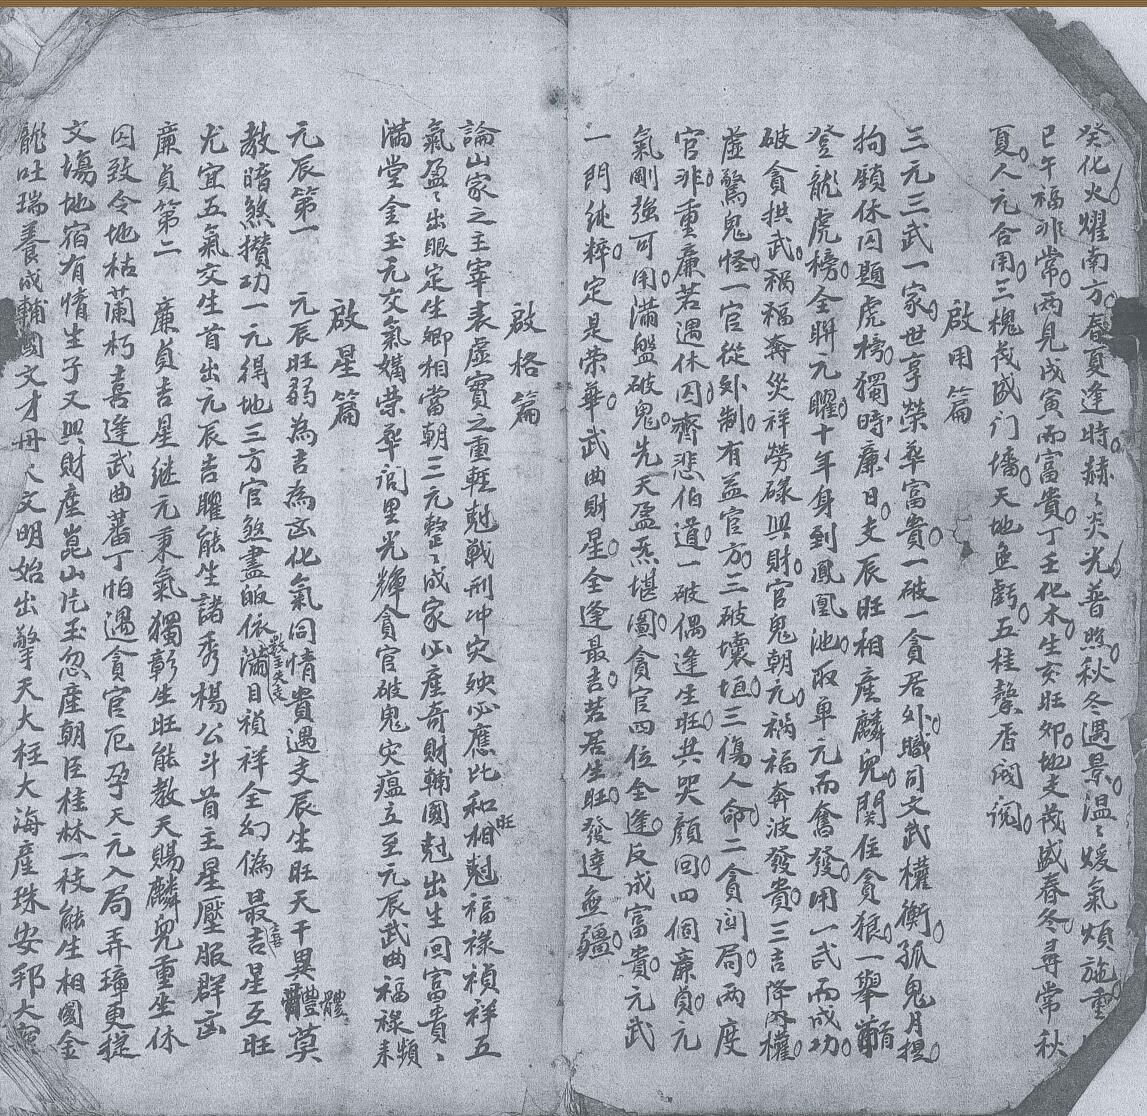 癸化火耀南方春夏逢時赫〻炎光普照秋冬遇景溫〻嫒氣煩施重
巳午福非常兩見戌寅而富貴丁壬化木生亥旺卯地支茂盛春冬尋常秋
夏人元合用三槐茂盛门墻天地無虧五桂馨香阀閱
啟用篇
三元三武一家世享榮華富貴一破一貪居外職司文武權衡孤鬼月提
拘願休囚題虎榜獨時廉日支辰旺相産麟兒関住貪狼一舉首
登龍虎榜全聨元曜十年身到鳳凰池取单元而奮發用一武而成功
破貪拱武稱福奔災祥勞碌與財官鬼朝元禍福奔波發貴三吉降内權
虚驚鬼怪一官從外制有益官方三破壞垣三傷人命二貪囚局两度
官非重廉若遇休囚齊悲伯道一破偶逢生旺共哭顔回四個廉貞元
氣剛強可用滿盤破鬼先天盈炁堪圖貪官四位全逢反成富貴元武
一門純粹定是荣華武曲財星全逢最吉若居生旺發達無疆
啟格篇
論山家之主宰表虚實之重輕尅戰刑冲灾殃必應比和相旺尅福禄禎祥五
氣盈〻出眼定生卿相當朝三元整〻成家必産奇財輔國尅出生回富貴〻
滿堂金玉元交氣媾荣華閭里光輝貪官破鬼灾瘟立至元辰武曲福禄頻来
啟星篇
元辰第一　元辰旺弱為吉為凶化氣同情貴遇支辰生旺天干異體莫
教暗煞攢功一元得地三方官煞盡皈依滿目禎祥全幻偽最吉星互旺
尤宜五氣交生首出元辰吉曜能生諸秀楊公斗首主星壓服群凶
廉貞第二　廉貞吉星继元秉氣獨彰生旺能教天賜麟兒重坐休
囚致令地枯蘭朽喜逢武曲蕃丁怕遇貪官厄孕天元入局弄璋更掟
文塲地宿有情生子又興財産崑山片玉忽産朝臣桂林一枝能生相國金
龍吐瑞養成輔國文才丹人文明始出擎天大柱大海産珠安邦大